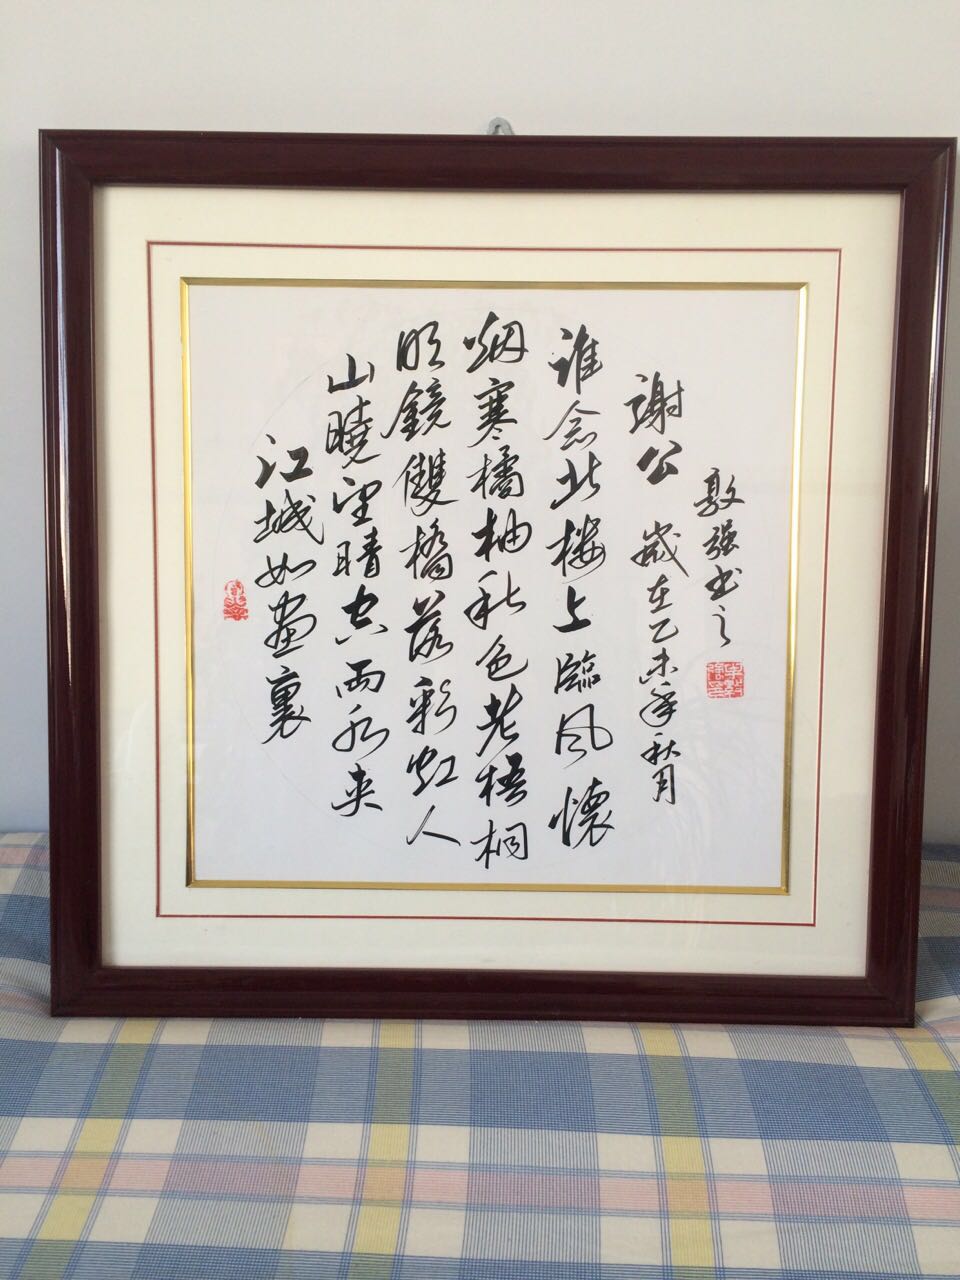 江城如畫裏
山曉望晴空兩水夾
明鏡雙橋落彩虹人
烟寒橘柚秋色老梧桐
誰念北楼上臨風懷
謝公 歲在乙未年秋月
敦强书之